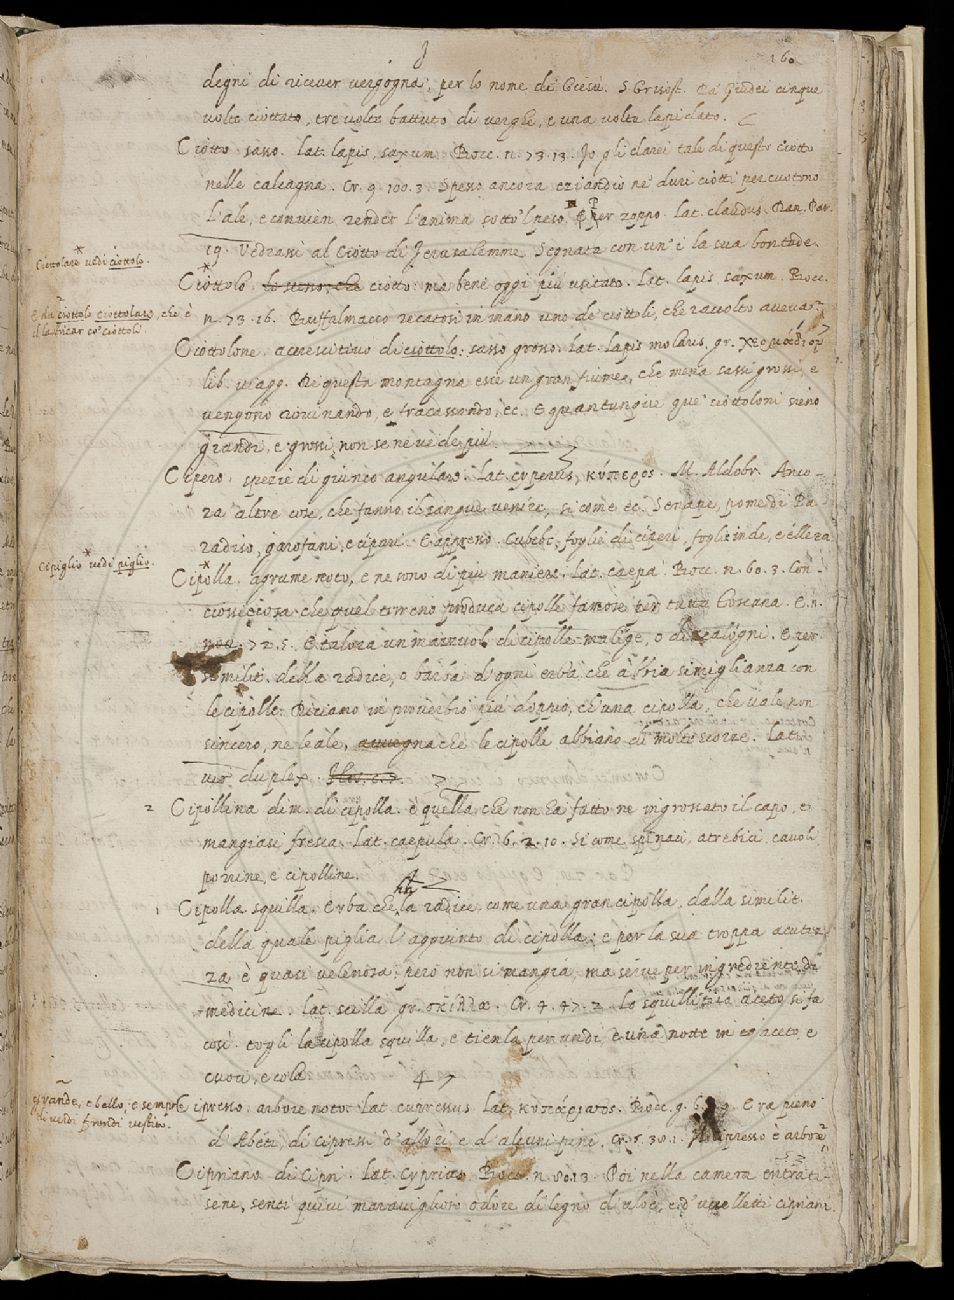 160
degni di ricever vergogna, per lo nome di Giesù. S. Grisost. Da' Giudei cinque
volte ciottato, tre volte battuto di verghe, e una volta lapidato.
Ciotto. sasso. Lat. lapis, saxum. Bocc. n. 73. 13. Io gli darei tale di questo ciotto
nelle calcagna. Cr. 9. 100. 3. Spesso ancora eziandio ne' duri ciotti percuotono
l'ale, e convien render l'anima sotto 'l peso. E per zoppo. Lat. claudus. Dan. Par.
19. Vedrassi al Ciotto di Jerusalemme Segnata con un' i la sua bontade.
Ciottolare * vedi ciottolo.
Ciottolo. lo stesso, che ciotto ma bene oggi più usitato. Lat. lapis saxum. Bocc.
E da ciottolo ciottolare, che è
il lastricar co' ciottoli.
n. 73. 16. Buffalmacco recatosi in mano uno de' ciottoli, che raccolto aveva.
Ciottolone. accrescitivo di ciottolo. sasso grosso. Lat. lapis molaris. gr.
lib. viagg. Di questa montagna esce un gran fiume, che mena sassi grossi, e
vengono rovinando, e fracassando, ec. E quantunque que' ciottoloni sieno
grandi, e grossi, non se ne vede più.
Cipero. spezie di giunco angulare. Lat. cyperus, κύπερος. M. Aldobr. Anco-
ra altre cose, che fanno il sangue venire, si come ec. Senape, pome di Pa-
radiso, garofani, e ciperi. E appresso. Cubebe, foglie di ciperi, foglie inde, e éllera
Cipiglio * vedi piglio.
Cipolla. agrume noto, e ne sono di più maniere. Lat. caepa. Bocc. n. 60. 3. Con-
ciossiecosa che quel terreno produca cipolle famose per tutta Toscana. E n.
72. 5. E talora un mazzuol di cipolle malige, o di scalogni. E per
similit. della radice, o barba d'ogni erba che abbia simiglianza con
le cipolle. Diciamo in proverbio più doppio, ch'una cipolla, che vale non
sincero, ne leale, avvegna che le cipolle abbiano di molte scorze. Lat.
vir duplex.
2 Cipollina dim. di cipolla. è quella che non ha fatto ne ingrossato il capo, e
mangiasi fresca. Lat. caepula. Cr. 6. 2. 10. Si come spinaci, atrebici cavoli
porrine, e cipolline.
1 Cipolla squilla. Erba che ha la radice, come una gran cipolla, dalla similit.
della quale piglia l'aggiunto di cipolla: e per la sua troppa acutez-
za è quasi velenosa, però non si mangia, ma serve per ingrediente di
medicine. Lat. scilla gr. σκίλλα. Cr. 4. 47. 2. Lo squillitico aceto si fa
così. togli la cipolla squilla, e tienla per un dì, e una notte in ec. aceto, e
cuoci, e cola.
grande, e bello, e sempre
di verdi frondi vestito.
Cipresso. arbore noto. Lat. cupressus. Lat. κυπάρισσος. Bocc. g. 6. Era pieno
d'Abeti, di cipressi d'allori, e d'alcuni pini. Cr. 5. 30. 1. Il cipresso è arbore
Cipriano di Cipri. Lat. cyprius. Bocc. n. 80. 13. Poi nella camera entrati-
sene, sentì quivi maraviglioso odore di legno d'aloè, e d'uccelletti cipriani.